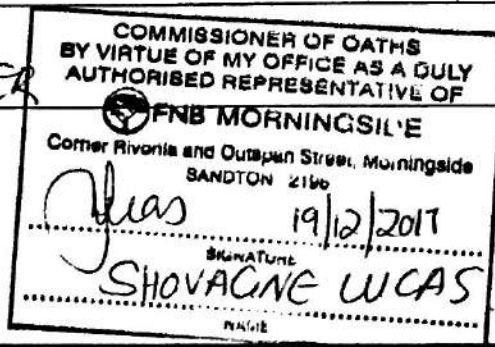 COMMISSIONER OF OATHS
BY VIRTUE OF MY OFFICE AS A DULY
AUTHORISED REPRESENTATIVE OF
ER
FNB MORNINGSIDE
Corner Rivonia and Outspan Street, Morningside
SANDTON 2196
Lucas 19/12/2017
SIGNATURE
SHOVAGNE LUCAS
NAME